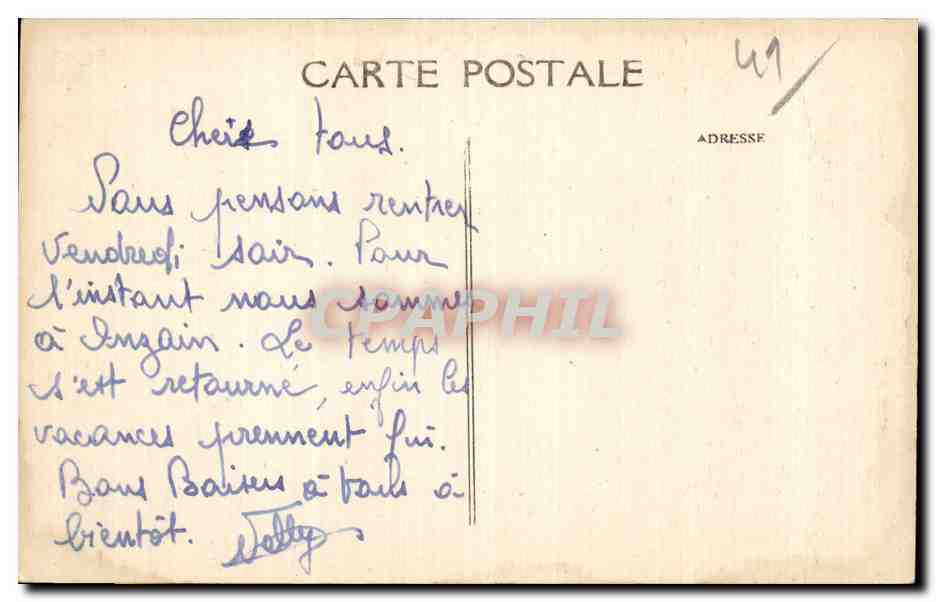 CARTE POSTALE
41
ADRESSE
Chers tous.
Nous pensons rentrer
Vendredi soir. Pour
l'instant nous sommes
à Onzain. Le temps
s'est retourné, enfin les
vacances prennent fin.
Bons Baisers à tous à
bientôt.
CPAPHIL